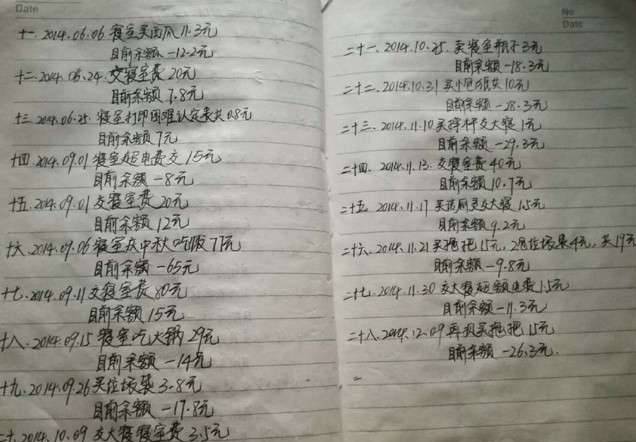 Date
十一、2014.06.06 寝室买西瓜11.3元
目前余额 -12.2元
十二、2014.06.24.交寝室费20元
目前余额7.8元
十三、2014.06.25 寝室打印困难认定表共0.8元
目前余额7元
十四、2014.09.01 寝室电费交15元
目前余额 -8元
十五、2014.09.01 交寝室费20元
目前余额12元
十六、2014.09.06 寝室庆中秋吃饭77元
目前余额 -65元
十七、2014.09.11 交寝室费80元
目前余额15元
十八、2014.09.15 寝室吃火锅29元
目前余额 -14元
十九、2014.09.26 买垃圾袋3.8元
目前余额 -17.8元
二十、2014.10.09 交大寝寝室费3.5元
No
Date
二十一、2014.10.25.买寝室 3元
目前余额 -18.3元
二十二、2014.10.31 10元
目前余额 -28.3元
二十三、2014.11.10 交大寝1元
目前余额 -29.3元
二十四、2014.11.13.交寝室费40元
目前余额10.7元
二十五、2014.11.17 交大寝1.5元
目前余额9.2元
二十六、2014.11.21 买拖把15元，垃圾袋4元，共19元
目前余额 -9.8元
二十七、2014.11.30 交大寝 1.5元
目前余额 -11.3元
二十八、2014.12.09 再次买拖把15元
目前余额 -26.3元.